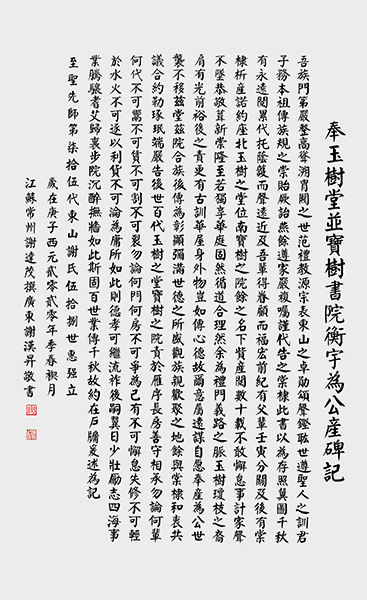 奉玉樹堂並寶樹書院衡宇為公產碑記
吾族門第嚴整高聳溯胄閥之世范禮教源宗表東山之卓勛頌聲鏗聀世遵聖人之訓君
子務本祖傳族規之崇貽厥詒燕餘遵家嚴複囑謹代告之棠棣此書以為存照冀圖千秋
有永遠閥累代托蔭護而聲遠近及吾輩得眷顧而福宏前紀有父輩壬寅分關及後有棠
棣析產諾約座北玉樹之堂位南寶樹之院餘之名下貲產閱數十載不敢懈怠事計家聲
不墜恭敬茸新崇隆至若獨享華庭固然循道合理然余為精禮門義路之脈玉樹瓊枝之裔
肩有光前裕後之責更有古訓華屋身外物豈如傳心德故爾意屬遠謀自愿奉產為公世
襲不移茲堂茲院合族後傳為彰顯彌滿世德之所盛觀族親歡聚之地餘與棠棣和衷共
議合約勒琢珉端嚴告後世百代玉樹之堂寶樹之院責於雁序長房善守相承勿論何輩
何代不可鬻不可貰不可割不可裂勿論何門何房不可爭為己有不可懈怠失修不可輕
於水火不可逐以利貨不可淪為庸所如此則德孝可繼流祚後嗣冀日少壯勵志四海事
業騰驤耆艾歸裏步院沉醉撫牆如此斯固百世業傳千秋故約在戶牖爰述為記
至聖先師第柒拾伍代東山謝氏伍拾捌世惠强立
歲在庚子西元貳零貳零年季春禊月
江蘇常州謝達茂撰廣東謝漢昇敬書